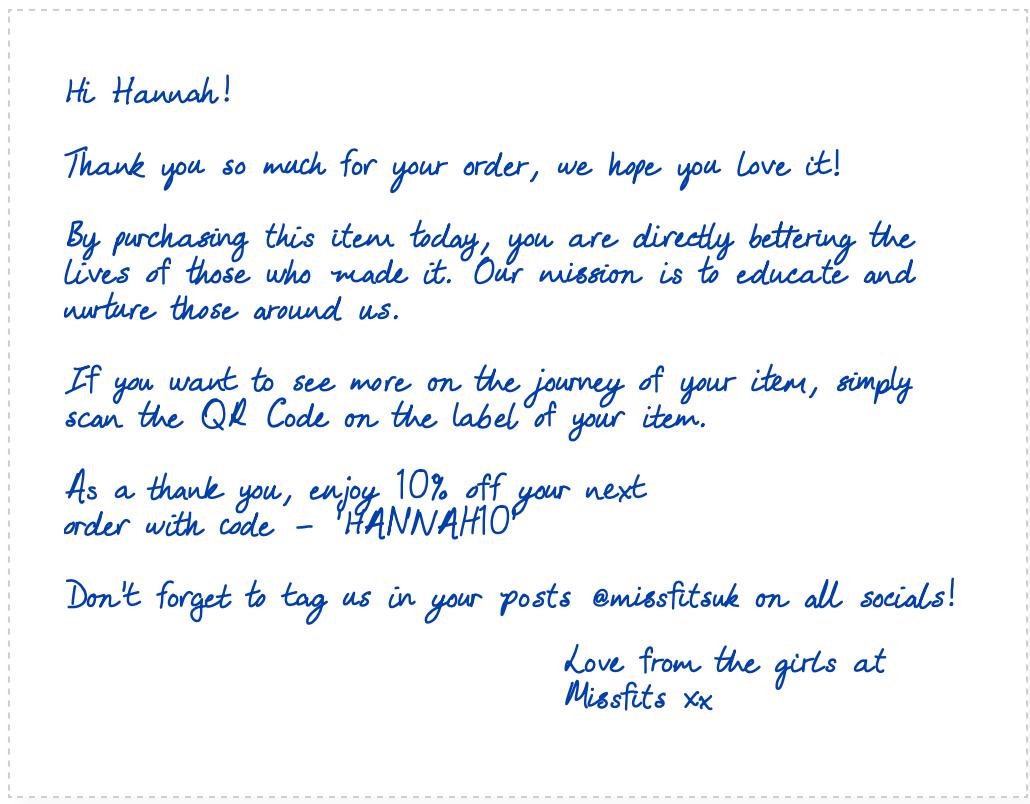 Hi Hannah!
Thank you so much for your order, we hope you love it!
By purchasing this item today, you are directly bettering the
lives of those who made it. Our mission is to educate and
nurture those around us.
If you want to see more on the journey of your item, simply
scan the QR Code on the label of your item.
As a thank you, enjoy 10% off your next
order with code - 'HANNAH10'
Don't forget to tag us in your posts @missfitsuk on all socials!
Love from the girls at
Missfits xx